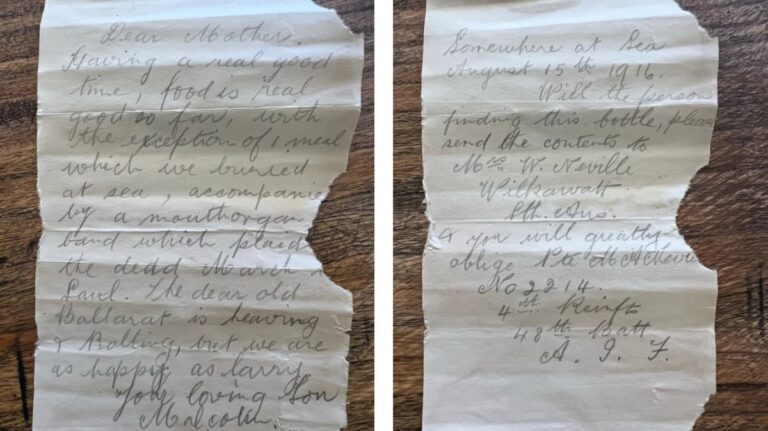 Dear Mother.
Having a real good
time, food is real
good so far, with
the exception of 1 meal
which we buried
at sea, accompanie
by a mouthorgan
band which plaid
the dead March
Saul. The dear old
Ballarat is heaving
& Rolling, but we are
as happy as larry
Your loving Son
Malcolm.
Somewhere at Sea
August 15th 1916.
Will the person
finding this bottle, please
send the contents to
Mrs W. Neville
Wilkawatt.
Sth. Aus.
& you will greatly
oblige Pte M A
No 2214.
4th Reinft
48th Batt
A. I. F.